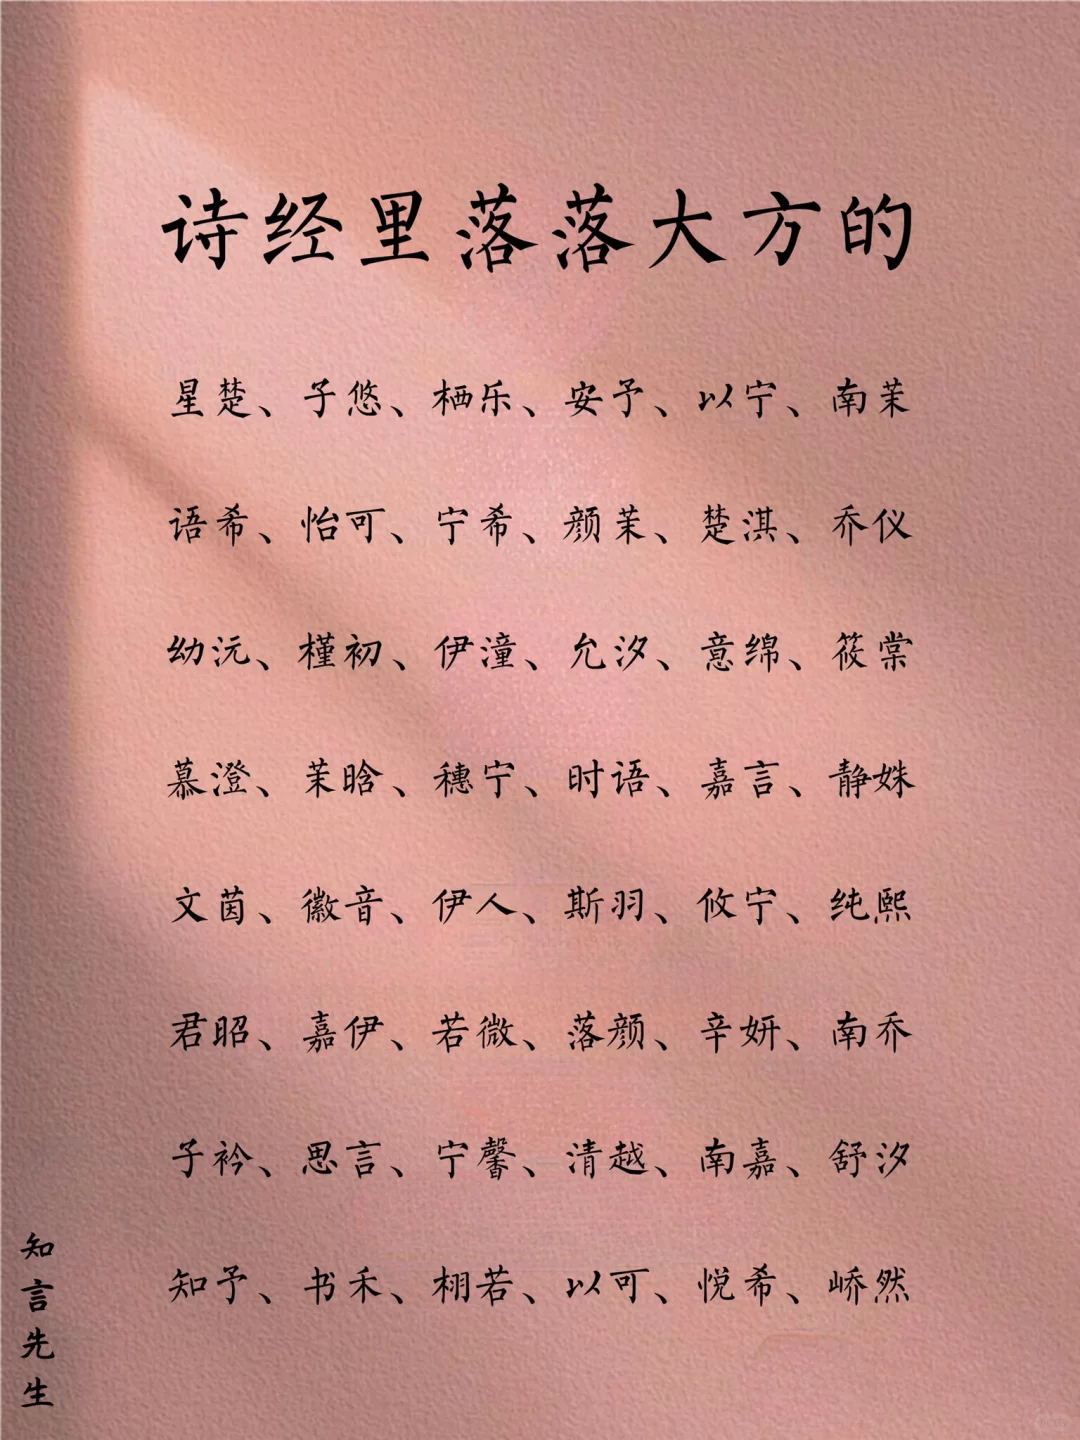 诗经里落落大方的
星楚、子悠、栖乐、安予、以宁、南茉
语希、怡可、宁希、颜茉、楚淇、乔仪
幼沅、槿初、伊潼、允汐、意绵、筱棠
慕澄、茉晗、穗宁、时语、嘉言、静姝
文茵、徽音、伊人、斯羽、攸宁、纯熙
君昭、嘉伊、若微、落颜、辛妍、南乔
子衿、思言、宁馨、清越、南嘉、舒汐
知予、书禾、栩若、以可、悦希、峤然
知言先生